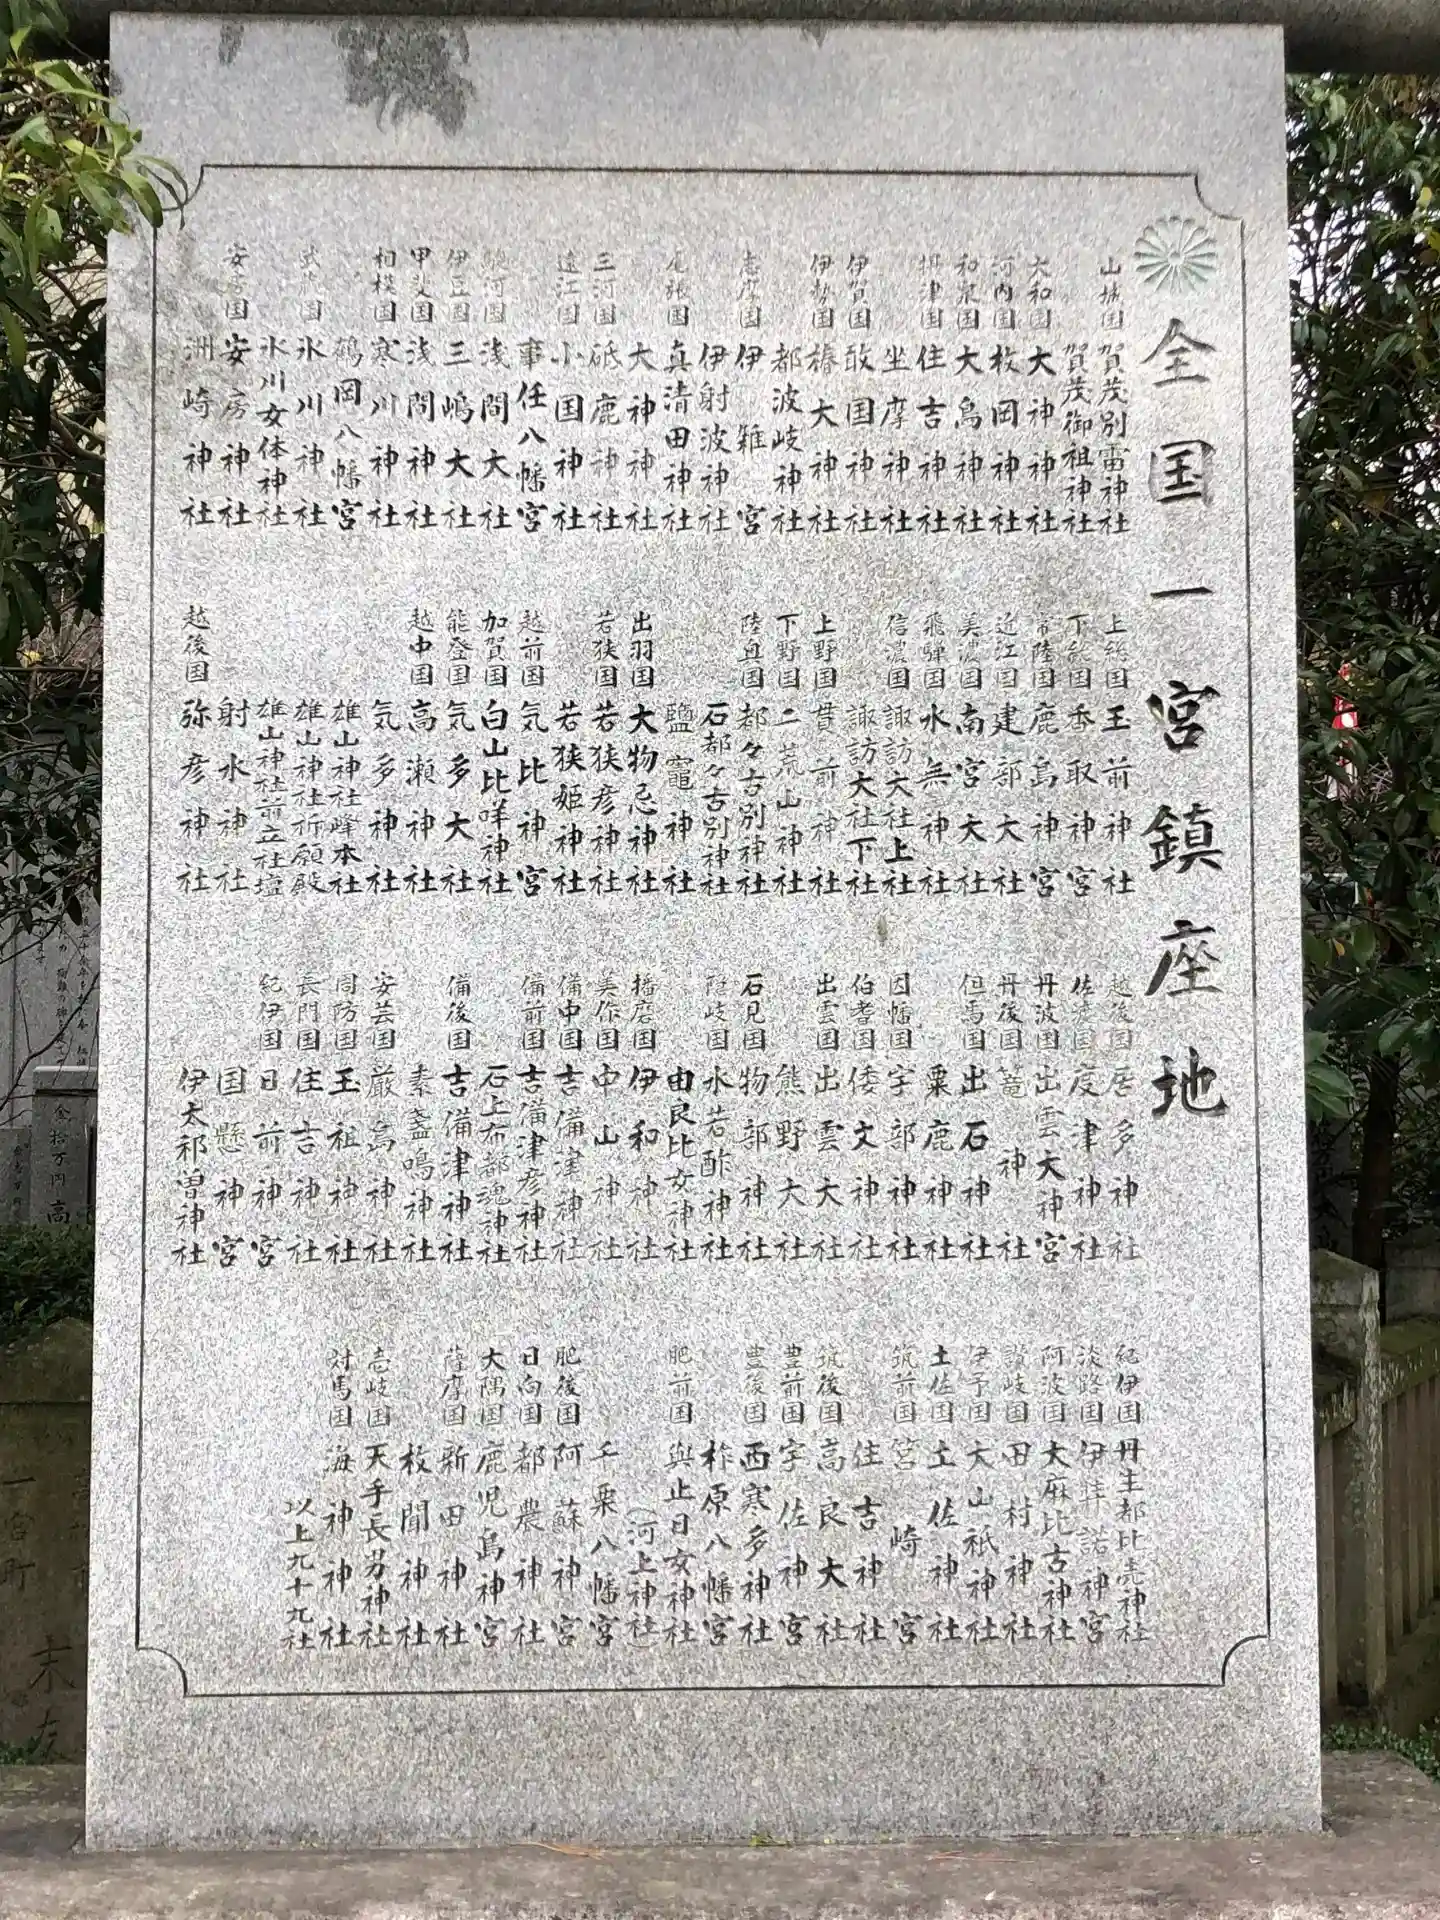 全国一宮鎮座地
山城国 賀茂別雷神社
賀茂御祖神社
大和国 大神神社
河内国 枚岡神社
和泉国 大鳥神社
摂津国 住吉神社
坐摩神社
伊賀国 敢国神社
伊勢国 椿大神社
都波岐神社
志摩国 伊雑宮
伊射波神社
尾張国 真清田神社
大神神社
三河国 砥鹿神社
遠江国 小国神社
事任八幡宮
駿河国 浅間大社
伊豆国 三嶋大社
甲斐国 浅間神社
相模国 寒川神社
鶴岡八幡宮
武蔵国 氷川神社
氷川女体神社
安房国 安房神社
洲崎神社
上総国 玉前神社
下総国 香取神宮
常陸国 鹿島神宮
近江国 建部大社
美濃国 南宮大社
飛騨国 水無神社
信濃国 諏訪大社上社
諏訪大社下社
上野国 貫前神社
下野国 二荒山神社
陸奥国 都々古別神社
石都々古別神社
鹽竈神社
出羽国 大物忌神社
若狭国 若狭彦神社
若狭姫神社
越前国 気比神宮
加賀国 白山比咩神社
能登国 気多大社
越中国 高瀬神社
気多神社
雄山神社峰本社
雄山神社祈願殿
雄山神社前立社壇
射水神社
越後国 弥彦神社
越後国 居多神社
佐渡国 度津神社
丹波国 出雲大神宮
丹後国 籠神社
但馬国 出石神社
粟鹿神社
因幡国 宇部神社
伯耆国 倭文神社
出雲国 出雲大社
熊野大社
石見国 物部神社
隠岐国 水若酢神社
由良比女神社
播磨国 伊和神社
美作国 中山神社
備中国 吉備津神社
備前国 吉備津彦神社
石上布都魂神社
備後国 吉備津神社
素盞鳴神社
安芸国 厳島神社
周防国 玉祖神社
長門国 住吉神社
紀伊国 日前神宮
国懸神宮
伊太祁曽神社
紀伊国 丹生都比売神社
淡路国 伊弉諾神宮
阿波国 大麻比古神社
讃岐国 田村神社
伊予国 大山祇神社
土佐国 土佐神社
筑前国 筥崎宮
住吉神社
筑後国 高良大社
豊前国 宇佐神宮
豊後国 西寒多神社
柞原八幡宮
肥前国 與止日女神社
(河上神社)
千栗八幡宮
肥後国 阿蘇神宮
日向国 都農神社
大隅国 鹿児島神宮
薩摩国 新田神社
枚聞神社
壱岐国 天手長男神社
対馬国 海神神社
以上九十九社
金拾万円 高
一宮町
末友